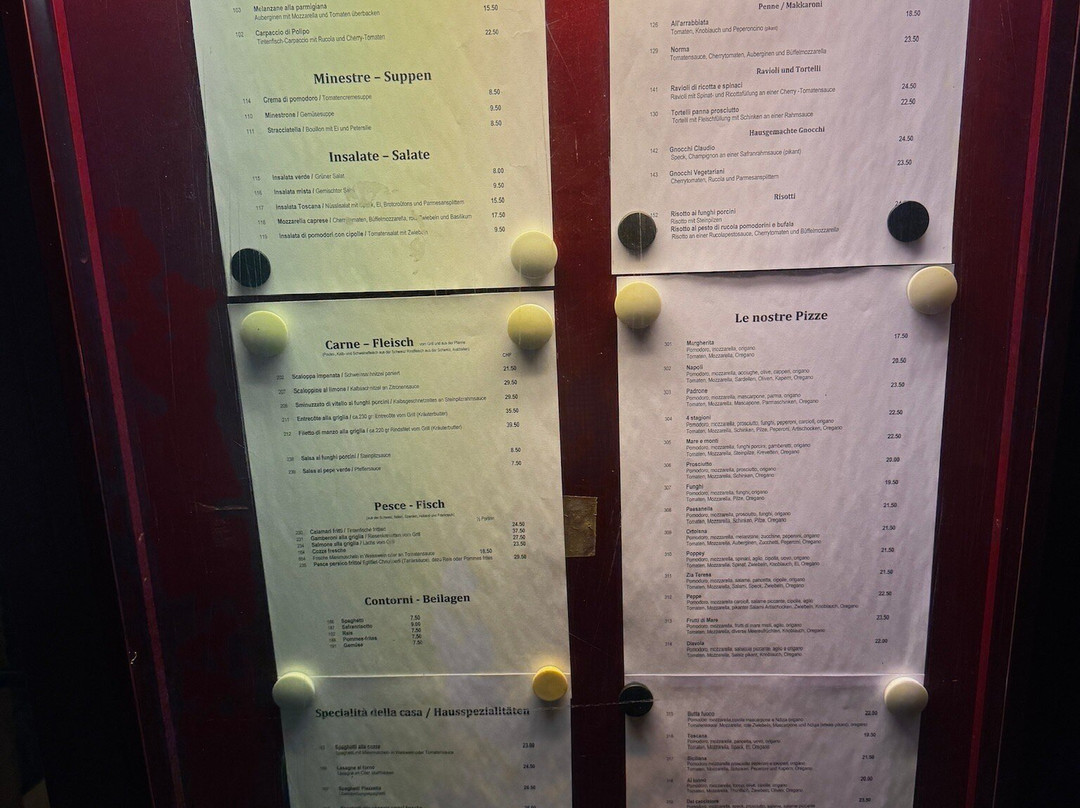 103 Melanzane alla parmigiana 15.50
Auberginen mit Mozzarella und Tomaten überbacken
102 Carpaccio di Polipo 22.50
Tintenfisch-Carpaccio mit Rucola und Cherry-Tomaten
Minestre – Suppen
114 Crema di pomodoro / Tomatencremesuppe 8.50
110 Minestrone / Gemüsesuppe 9.50
111 Stracciatella / Bouillon mit Ei und Petersilie 8.50
Insalate – Salate
115 Insalata verde / Grüner Salat 8.00
116 Insalata mista / Gemischter 9.50
117 Insalata Toscana / Nüsslisalat mit Ei, Brotcroûtons und Parmesansplittern 15.50
118 Mozzarella caprese / Büffelmozzarella, Zwiebeln und Basilikum 17.50
119 Insalata di pomodori con cipolle / Tomatensalat mit Zwiebeln 9.50
Carne – Fleisch
CHF
Scaloppa impanata / Schweinschnitzel paniert 21.50
207 Scaloppine al limone / Kalbsschnitzel an Zitronensauce 29.50
Sminuzzato di vitello ai funghi porcini / Kalbsgeschnetzeltes an Steinpilzrahmsauce 29.50
211 Entrecôte alla griglia / ca 230 gr Entrecôte vom Grill (Kräuterbutter) 35.50
212 Filetto di manzo alla griglia / ca 220 gr Rindsfilet vom Grill (Kräuterbutter) 39.50
Salsa ai funghi porcini / Steinpilzsauce 8.50
Salsa al pepe verde / Pfeffersauce 7.50
Pesce - Fisch
Calamari fritti / Tintenfische frittiert 24.50
Gamberoni alla griglia / Riesenkrevetten vom Grill 37.50
Salmone alla griglia / Lachs vom Grill 27.50
Cozze fresche 23.50
Frische Miesmuscheln in Weissweinsauce oder an Tomatensauce 18.50
Pesce persico fritto/ 29.50
Contorni - Beilagen
Spaghetti 7.50
Safranrisotto 9.00
Reis 7.50
Pommes-frites 7.50
Gemüse 7.50
Specialità della casa / Hausspezialitäten
Spaghetti alle cozze 23.50
Lasagne al forno 24.50
Penne / Makkaroni
128 All'arrabbiata 18.50
Tomaten, Knoblauch und Peperoncino (pikant)
129 Norma 23.50
Tomatensauce, Cherrytomaten, Auberginen und Büffelmozzarella
Ravioli und Tortelli
141 Ravioli di ricotta e spinaci 24.50
Ravioli mit Spinat- und Ricottafüllung an einer Cherry -Tomatensauce
130 Tortelli panna prosciutto 22.50
Tortelli mit Fleischfüllung mit Schinken an einer Rahmsauce
Hausgemachte Gnocchi
142 Gnocchi Claudio 24.50
Speck, Champignon an einer Safranrahmsauce (pikant)
143 Gnocchi Vegetariani 23.50
Cherrytomaten, Rucola und Parmesansplittern
Risotti
152 Risotto ai funghi porcini
Risotto mit Steinpilzen
Risotto al pesto di rucola pomodorini e bufala
Risotto an einer Rucolapestosauce, Cherrytomaten und Büffelmozzarella
Le nostre Pizze
301 Margherita 17.50
Pomodoro, mozzarella, origano
Tomaten, Mozzarella, Oregano
302 Napoli 20.50
Pomodoro, mozzarella, acciughe, olive, capperi, origano
Tomaten, Mozzarella, Sardellen, Oliven, Kapern, Oregano
303 Padrone 23.50
Pomodoro, mozzarella, mascarpone, parma, origano
Tomaten, Mozzarella, Mascarpone, Parmaschinken, Oregano
304 4 stagioni 22.50
Pomodoro, mozzarella, prosciutto, funghi, peperoni, carciofi, origano
Tomaten, Mozzarella, Schinken, Pilze, Peperoni, Artischocken, Oregano
305 Mare e monti 22.50
Pomodoro, mozzarella, funghi porcini, gamberetti, origano
Tomaten, Mozzarella, Steinpilze, Krevetten, Oregano
306 Prosciutto 20.00
Pomodoro, mozzarella, prosciutto, origano
Tomaten, Mozzarella, Schinken, Oregano
307 Funghi 19.50
Pomodoro, mozzarella, funghi, origano
Tomaten, Mozzarella, Pilze, Oregano
308 Paesanella 21.50
Pomodoro, mozzarella, prosciutto, funghi, origano
Tomaten, Mozzarella, Schinken, Pilze, Oregano
309 Ortolana 21.50
Pomodoro, mozzarella, melanzane, zucchine, peperoni, origano
Tomaten, Mozzarella, Auberginen, Zucchetti, Peperoni, Oregano
310 Popeye 21.50
Pomodoro, mozzarella, spinaci, aglio, cipolla, uovo, origano
Tomaten, Mozzarella, Spinat, Zwiebeln, Knoblauch, Ei, Oregano
311 Zia Teresa 21.50
Pomodoro, mozzarella, salame, pancetta, cipolle, origano
Tomaten, Mozzarella, Salami, Speck, Zwiebeln, Oregano
312 Peppe 22.50
Tomaten, Mozzarella, pikanter Salami Artischocken, Zwiebeln, Knoblauch, Oregano
313 Frutti di Mare 23.50
Pomodoro, mozzarella, frutti di mare misti, aglio, origano
Tomaten, Mozzarella, diverse Meeresfrüchten, Knoblauch, Oregano
314 Diavola 22.00
Pomodoro, mozzarella, salsiccia piccante, aglio e origano
Tomaten, Mozzarella, Salami pikant, Knoblauch, Oregano
315 22.50
316 Toscana 19.50
Pomodoro, mozzarella, pancetta, uovo, origano
Tomaten, Mozzarella, Speck, Ei, Oregano
317 Siciliana 21.50
20.50